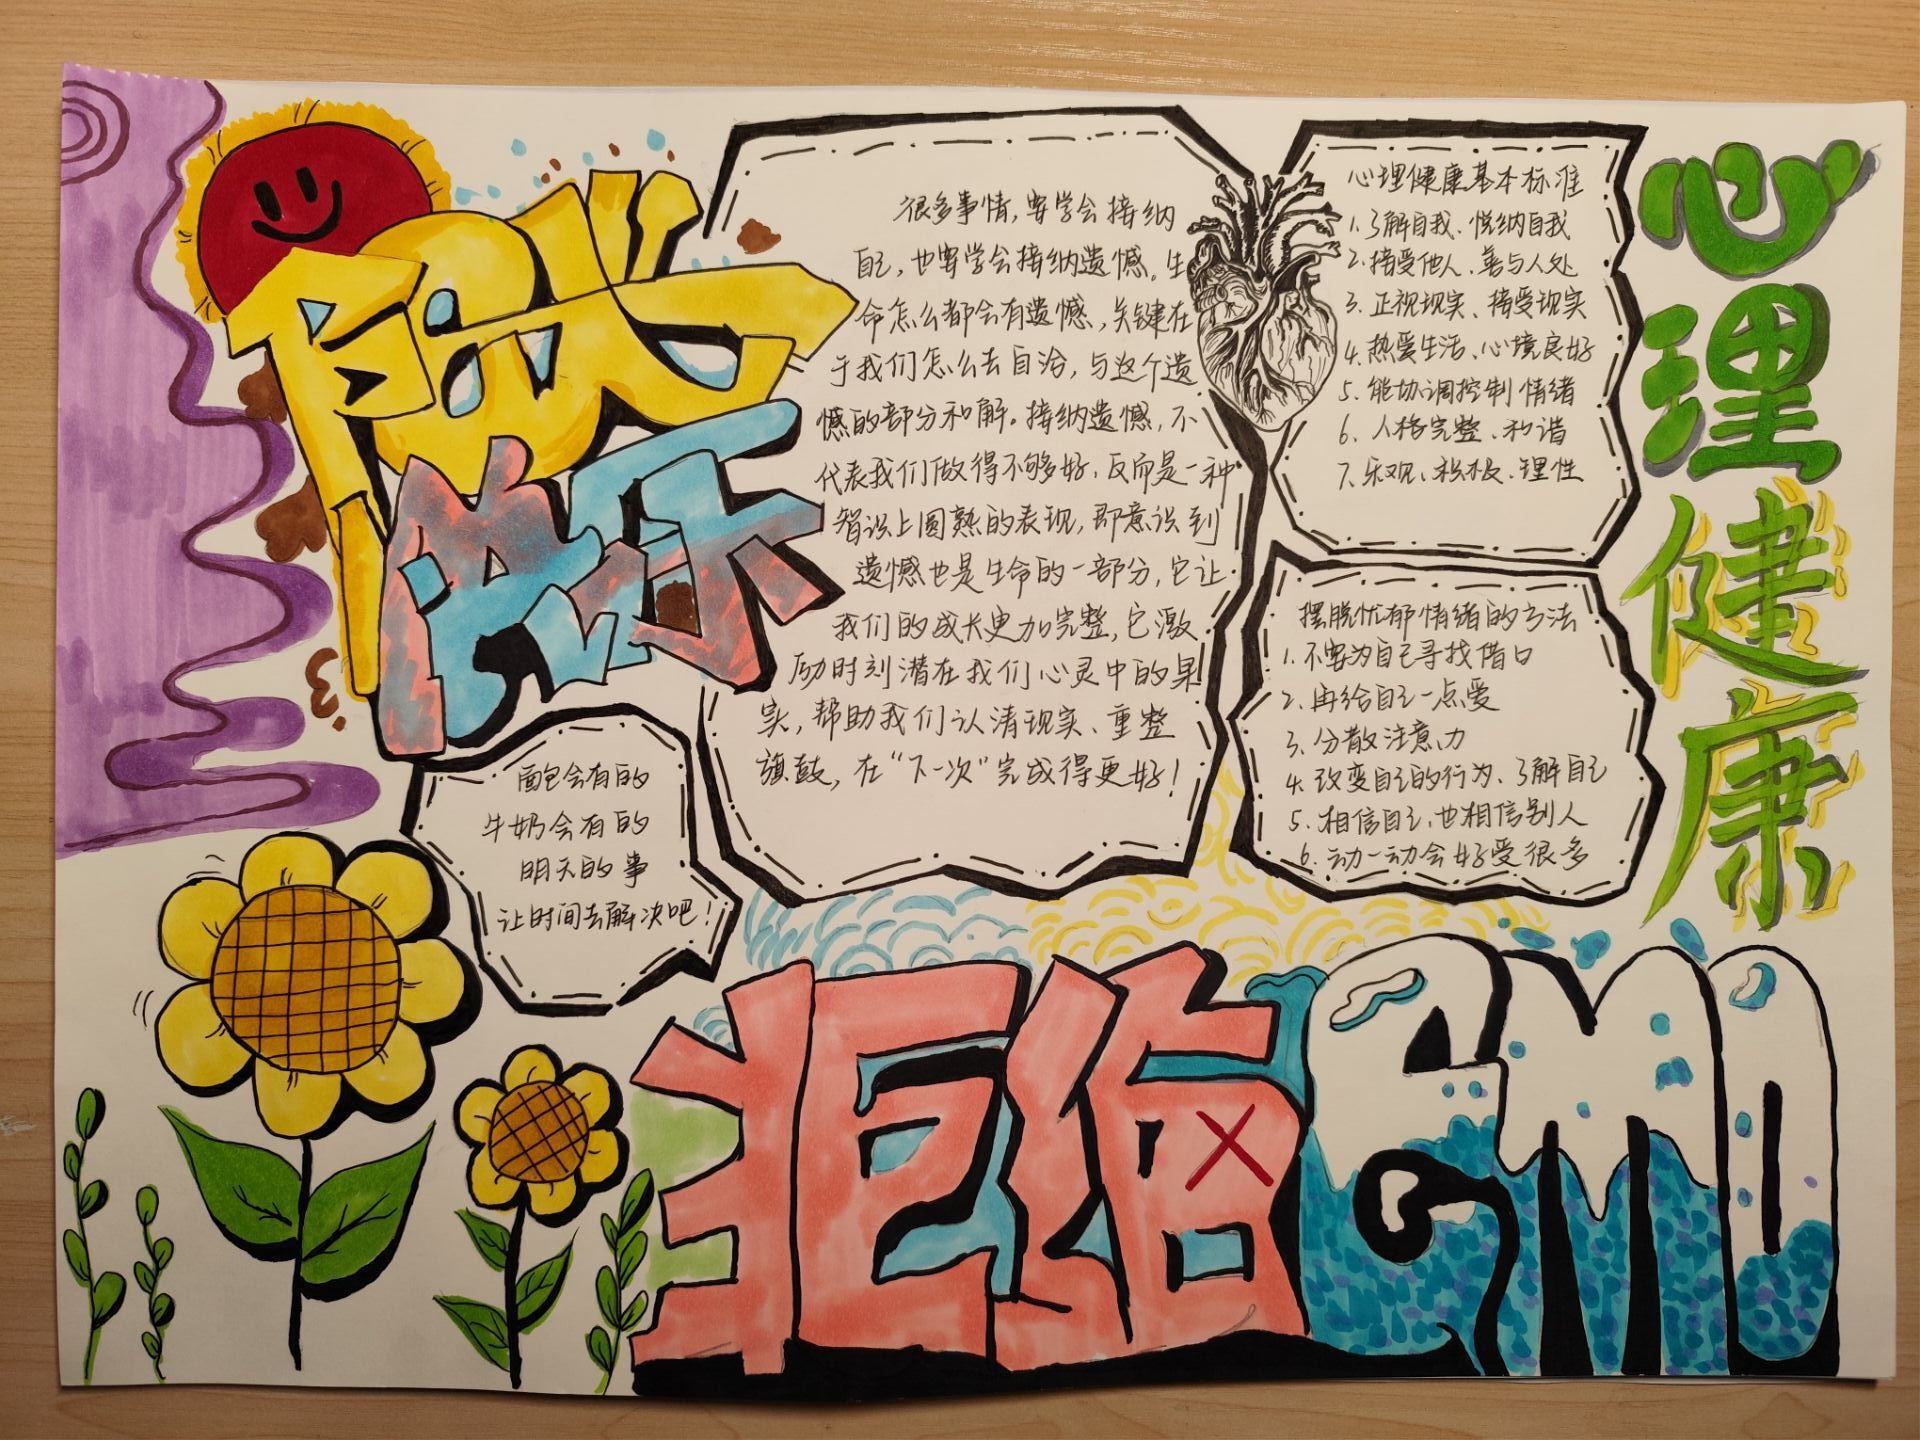 阳光
快乐
很多事情，要学会接纳
自己，也要学会接纳遗憾。生
命怎么都会有遗憾，关键在
于我们怎么去自洽，与这个遗
憾的部分和解。接纳遗憾，不
代表我们做得不够好，反而是一种
智识上圆熟的表现，即意识到
遗憾也是生命的一部分，它让
我们的成长更加完整，它激
励时刻潜在我们心灵中的果
实，帮助我们认清现实、重整
旗鼓，在“下一次”完成得更好！
心理健康基本标准
1.了解自我、悦纳自我
2.接受他人、善与人处
3.正视现实、接受现实
4.热爱生活、心境良好
5.能协调控制情绪
6.人格完整、和谐
7.乐观、积极、理性
心理健康
摆脱忧郁情绪的方法
1.不要为自己寻找借口
2.再给自己一点爱
3.分散注意力
4.改变自己的行为、了解自己
5.相信自己，也相信别人
6.动一动会好受很多
面包会有的
牛奶会有的
明天的事
让时间去解决吧！
拒绝EMO